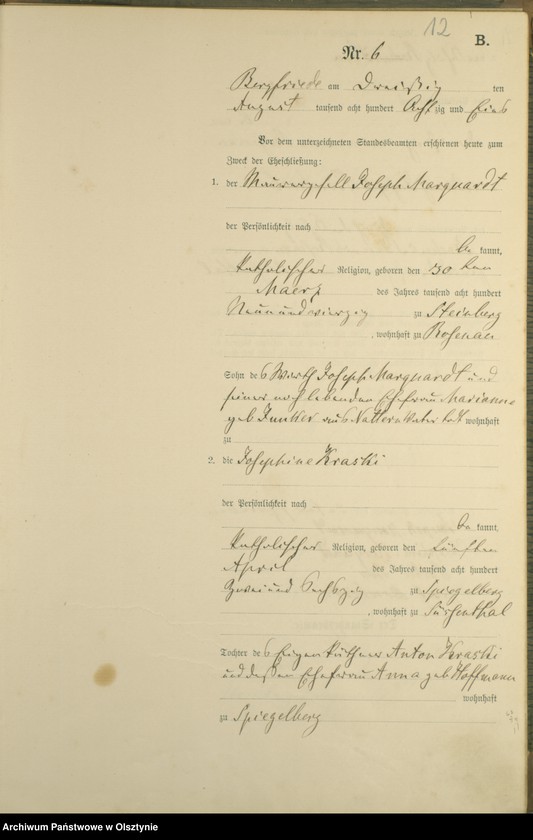 12
B.
Nr. 6
Bergfriede am Dreißig ten
August tausend acht hundert Achtzig und Eins
Vor dem unterzeichneten Standesbeamten erschienen heute zum
Zweck der Eheschließung:
1. der Maurergesell Joseph Marquardt
der Persönlichkeit nach
be kannt,
katholischer Religion, geboren den 30 ten
Maerz des Jahres tausend acht hundert
Neunundvierzig zu Steinberg
, wohnhaft zu Rosenau
Sohn des Wirth Joseph Marquardt und
seiner noch lebenden Ehefrau Marianna
geb aus Nattern wohnhaft
zu
2. die Josephine Kraski
der Persönlichkeit nach
be kannt,
katholischer Religion, geboren den fünften
April des Jahres tausend acht hundert
Zwei und Sechszig zu Spiegelberg
, wohnhaft zu Süssenthal
Tochter des Eigenkäthner Anton Kraski
und dessen Ehefrau Anna geb Hoffmann
wohnhaft
zu Spiegelberg
Archiwum Państwowe w Olsztynie